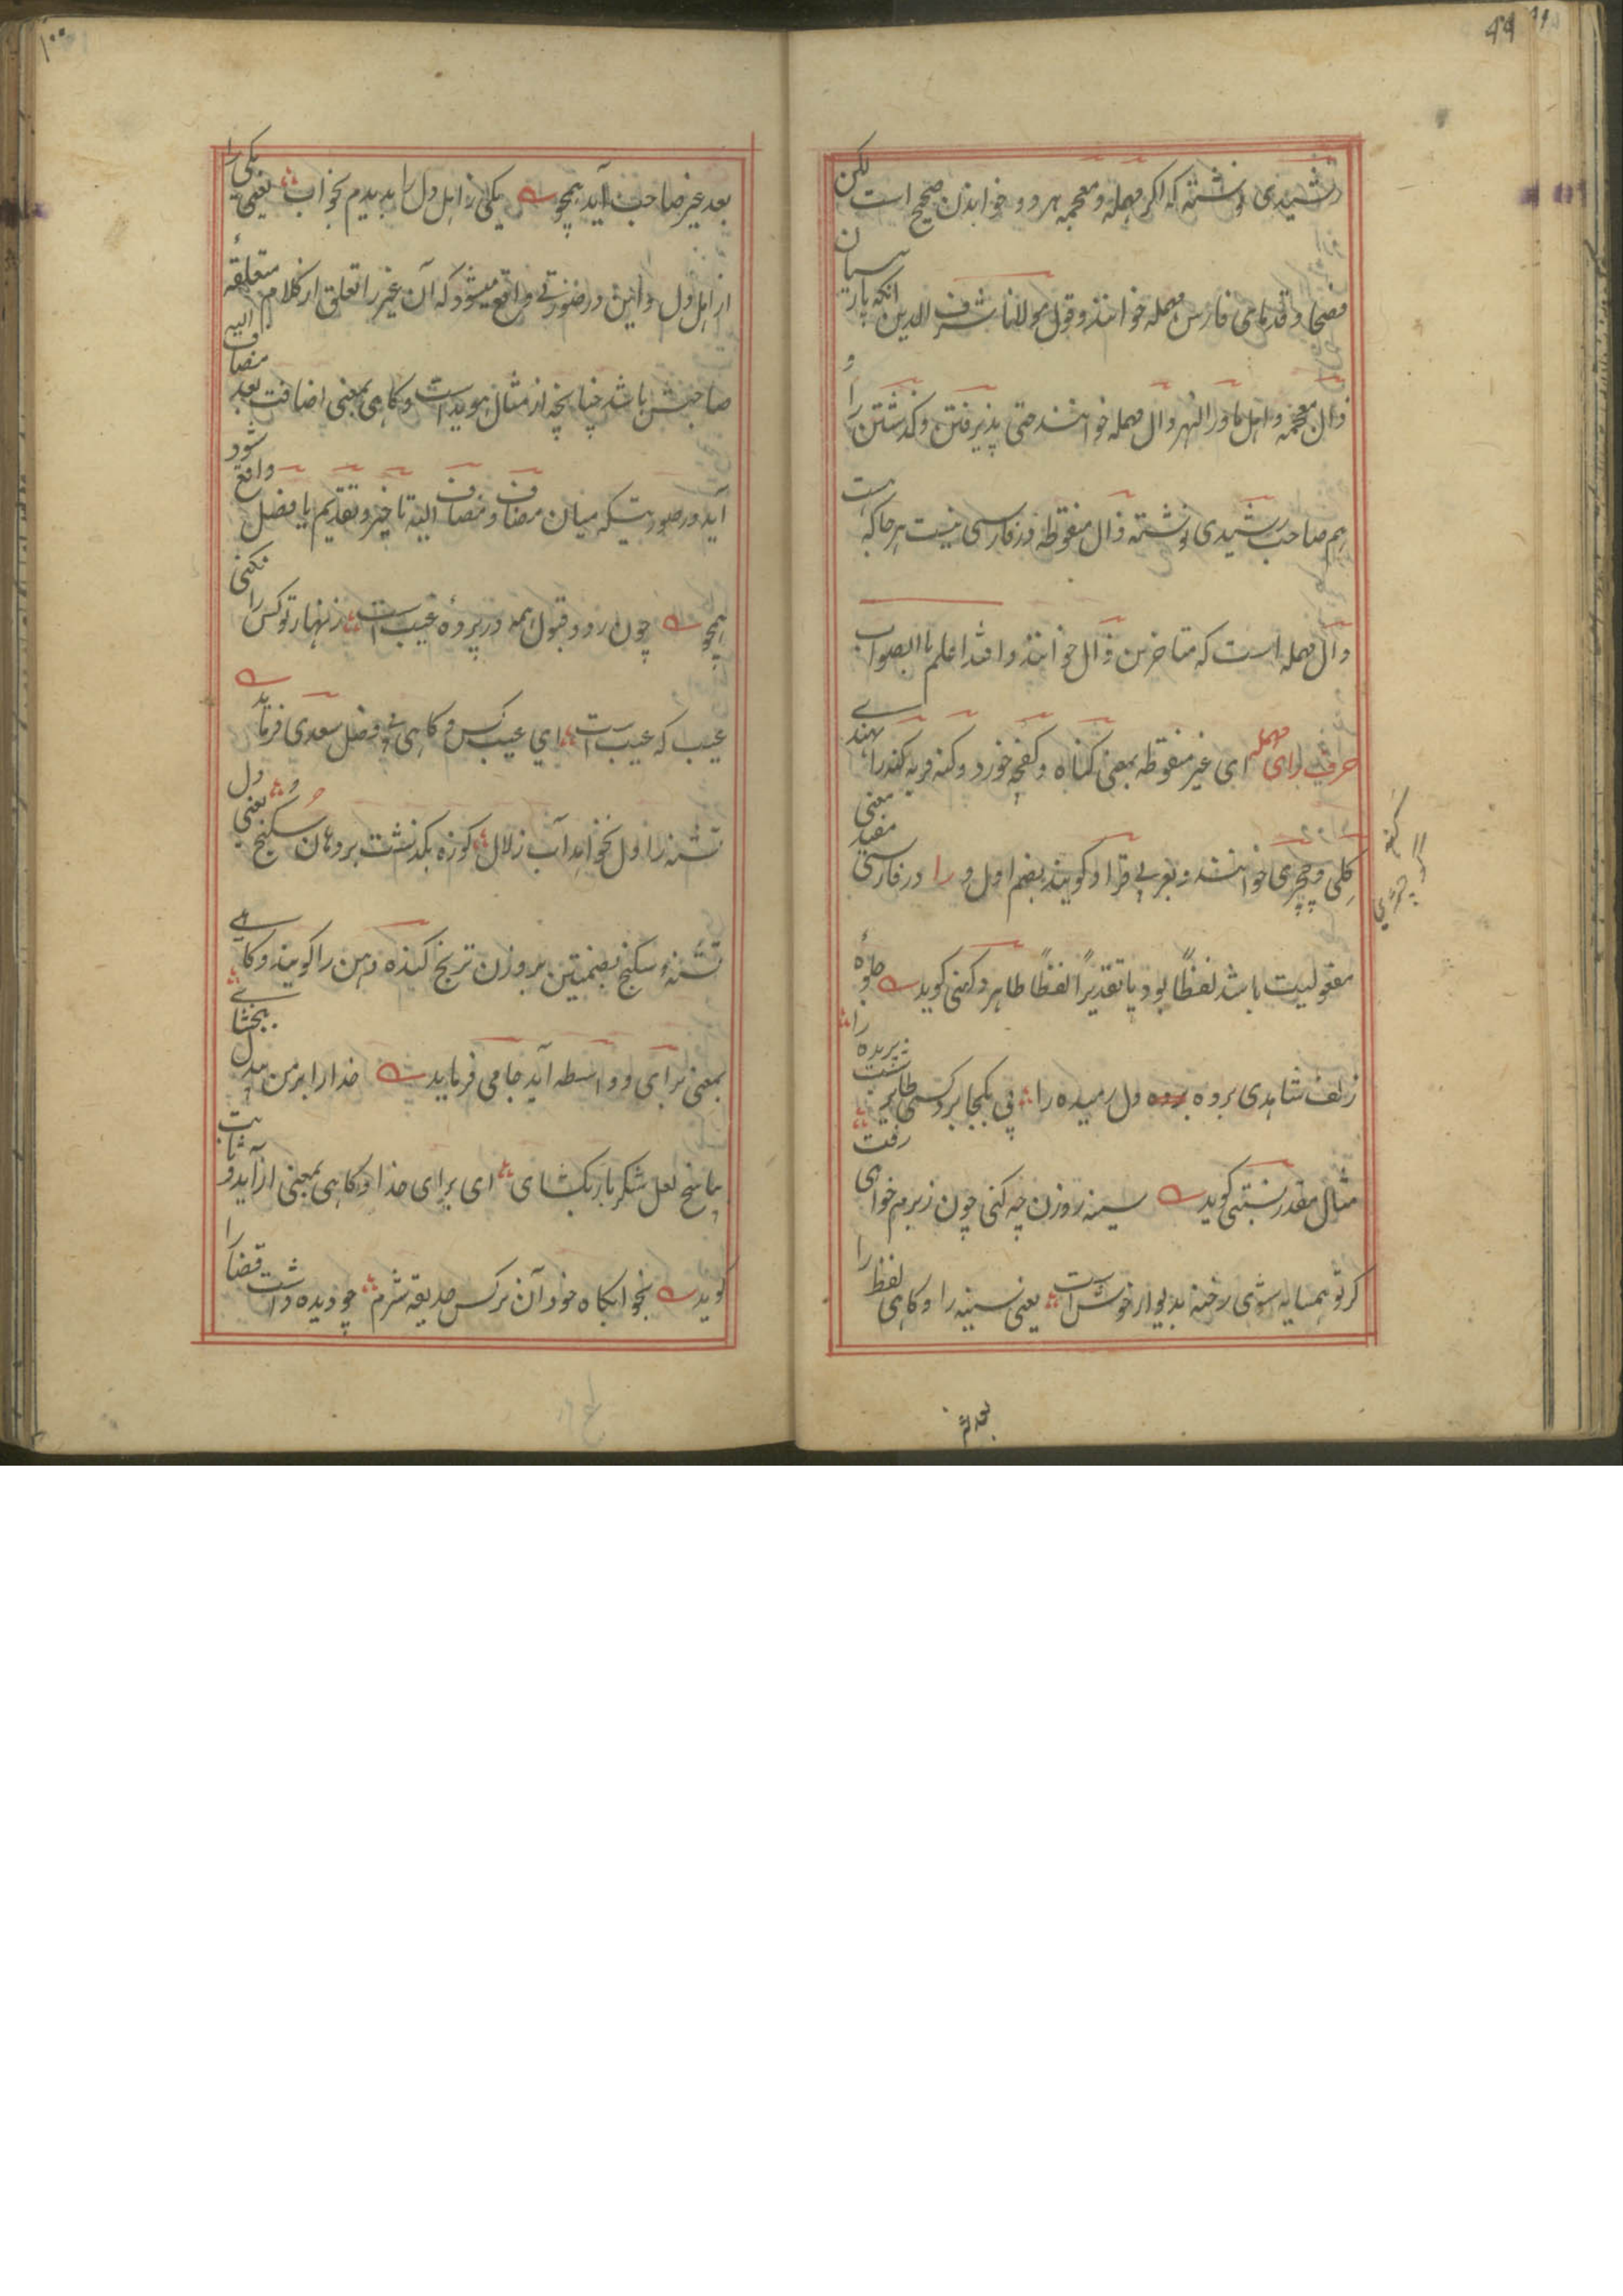 ۹۹
رشیدی نوشته که اکر مهمله و معجمه هر دو خواندن صحیح است لکن
فصحا و قدمای فارس مهمله خوانند و قول مولانا شرف الدین انکه پارسیان
ذال معجمه و اهل ماورالنهر دال مهمله خوانند حتی پذیرفتن و کذشتن را و
هم صاحب رشیدی نوشته ذال منقوطه در فارسی نیست هر جا که هست
دال مهمله است که متاخرین ذال خوانند والله اعلم باالصواب
حرف رای مهمله ای غیر منقوطه بمعنی کناه و کفچه خورد و کنه فربه کنه را بهندے
کلی و چچری خوانند و بعربی قراد کویند بضم اول و را در فارسی مفید معنی
مفعولیت باشد لفظًا بود یا تقدیرًا لفظًا طاهر وکهنی کوید جلوهٔ
زلف شاهدی برده دل رمیده را پی بکجا برد کسی طایر شب پریده را
مثال مقدر نسبتی کوید سینه روزن چه کنی چون ز برم خواهی رفت
کر تو همسایه شوی رخنه بدیوار خوش است یعنی سینه را و کاهی لفظ را
بعد غیر
۱۰۰
بعد غیر صاحب آید همچو یکی ز اهل دل را بدیدم بخواب یعنی یکی را
از اهل دل و این در صورتی واقع میشود که آن غیر را تعلق از کلام متعلقهٔ
صاحبش باشد چنانچه از مثال هویداست و کاهی بمعنی اضافت بعد مضاف الیه
آید در صورتیکه میان مضاف و مضاف الیه تاخیر و تقدیم یا فصل واقع شود
همچو چون رد و قبول همه در پردهٔ غیب است زنهار تو کس را نکنی
عیب که عیب است ای عیب کس و کاهی فصل سعدی فرماید
تشنه را دل نخواهد آب زلال کوزه بکذشت بر دهان سکنج یعنی دل
تشنه و سکنج بضمتین بر وزن ترنج کنده دهن را کویند و کاهے
بمعنی برای و واسطه آید جامی فرماید خدارا بر من بیدل ببخشاے
بپاسخ لعل شکربار بکشای ای برای خدا و کاهی بمعنی از آید و ثابت
کوید بخوابکاه خود آن نرکس حدیقه شرم چو دیده داشت قضا را